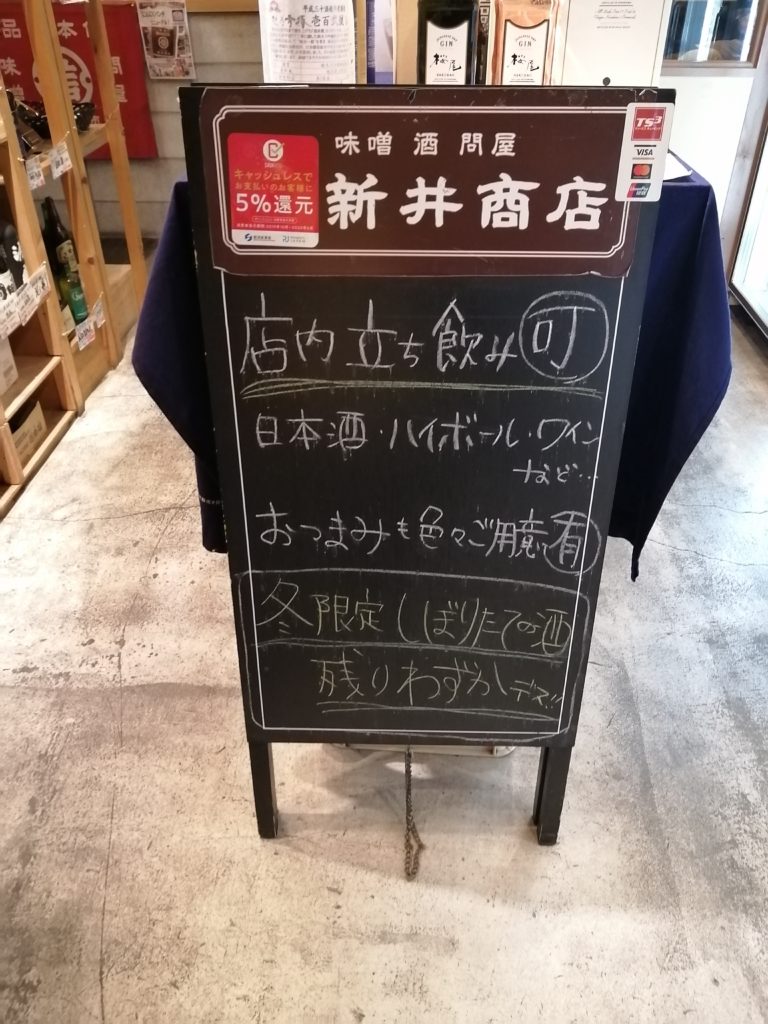 平成三十
壱百
GIN
桜尾
GIN
桜尾
味噌 酒 問屋
新井商店
キャッシュレスで
お支払いのお客様に
5%還元
TS3
VISA
店内立ち飲み可
日本酒・ハイボール・ワイン
など…
おつまみも色々ご用意有
冬限定しぼりたての酒
残りわずかデス!!